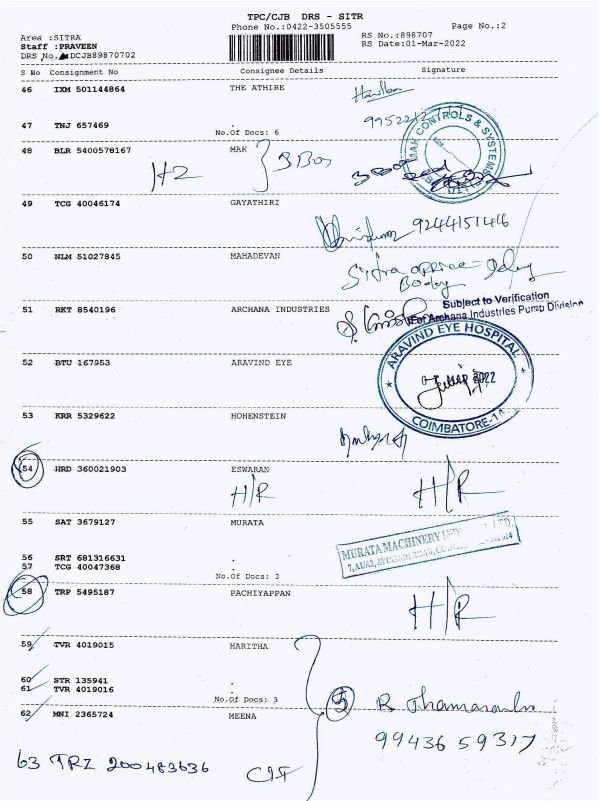 TPC/CJB DRS - SITR
Phone No.:0422-3505555 Page No.:2
Area :SITRA RS No.:898707
Staff :PRAVEEN RS Date:01-Mar-2022
DRS No. DCJB89870702
S No Consignment No Consignee Details Signature
46 IXM 501144864 THE ATHIRE
47 TNJ 657469 .
No.Of Docs: 6
MAK CONTROLS & SYSTEMS
48 BLR 5400578167 MAK 3 Box
H2
3 Box
49 TCG 40046174 GAYATHIRI
9244151446
50 NLM 51027845 MAHADEVAN
Sitra office
51 RKT 8540196 ARCHANA INDUSTRIES
Subject to Verification
For Archana Industries Pump Division
52 BTU 167953 ARAVIND EYE
ARAVIND EYE HOSPITAL
2022
COIMBATORE-14
53 KRR 5329622 HOHENSTEIN
54 HRD 360021903 ESWARAN
H/R H/R
55 SAT 3679127 MURATA
MURATA MACHINERY
56 SRT 681316631 .
57 TCG 40047368 .
No.Of Docs: 3
58 TRP 5495187 PACHIYAPPAN
H/R
59 TVR 4019015 HARITHA
60 STR 135941 .
61 TVR 4019016 .
No.Of Docs: 3
62 MNI 2365724 MEENA
5 R
99436 59317
63 TRZ 200483636